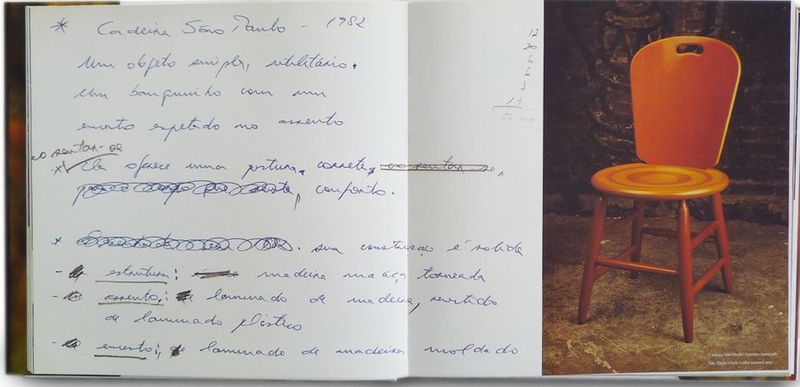 * Cadeira São Paulo - 1982
Um objeto simples, utilitário.
Um banquinho com um
encosto espetado no assento
ao sentar-se
* Ela oferece uma postura correta, ao sentar-se,
conforto.
* sua construção é sólida
- estrutura: madeira maciça torneada
- assento: de laminado de madeira, revestido
de laminado plástico
- encosto: laminado de madeira moldado
12
20
6
6
7
13